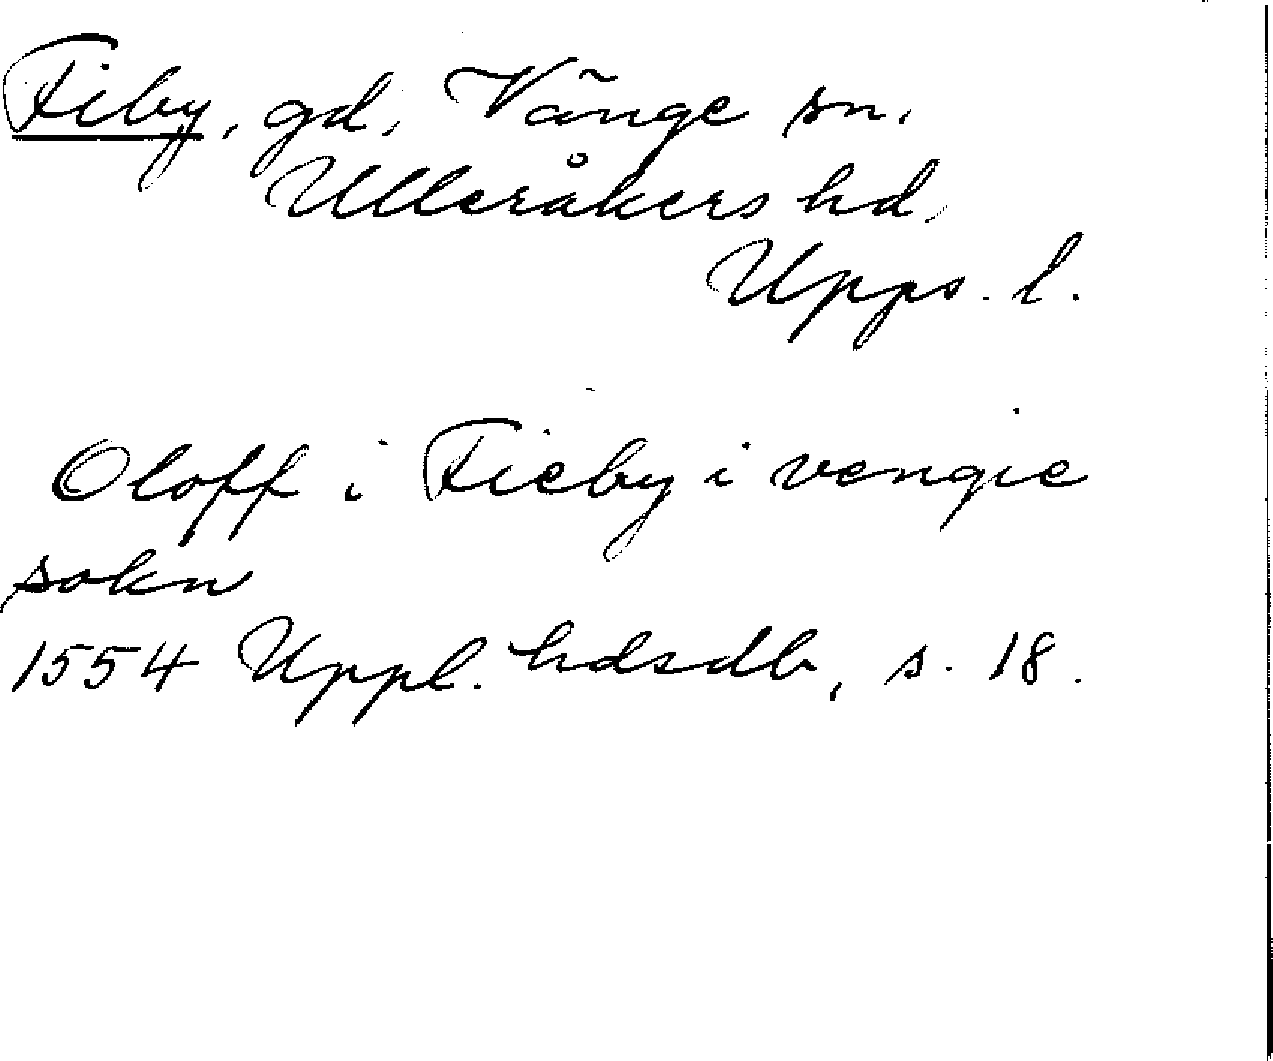 Fiby, gd, Vänge sn.
Ulleråkers hd,
Upps. l.
Oloff i Fieby i vengie
sokn
1554 Uppl. hdsdb, s. 18.